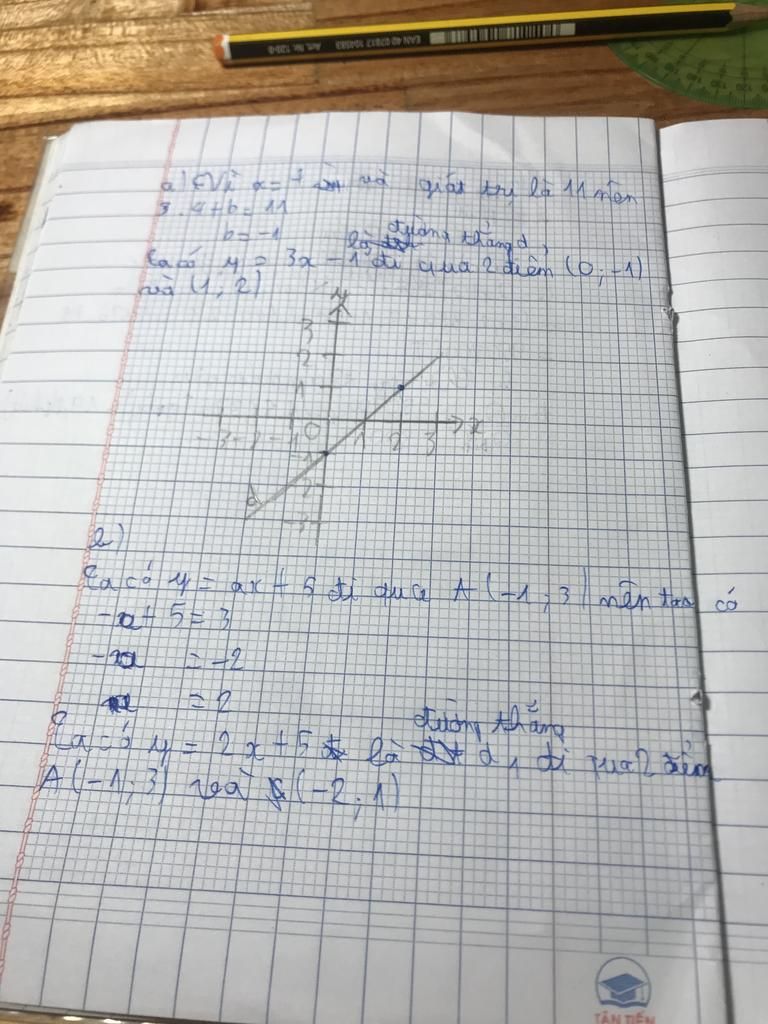 EAN 40 07817 104583
Art. Nr. 120-0
a) Vì x = 4 và giá trị là 11 nên
3.4 + b = 11
b = -1
đường thẳng d,
Ta có y = 3x - 1 là đi qua 2 điểm (0; -1)
và (1; 2)
y
3
2
1
-3 -2 -1 O 1 2 3 x
-1
-2
d
-3
2)
Ta có y = ax + 5 đi qua A(-1; 3) nên ta có
-a + 5 = 3
-a = -2
a = 2
đường thẳng
Ta có y = 2x + 5 là d1 đi qua 2 điểm
A(-1; 3) và (-2; 1)
TÂN TIẾN